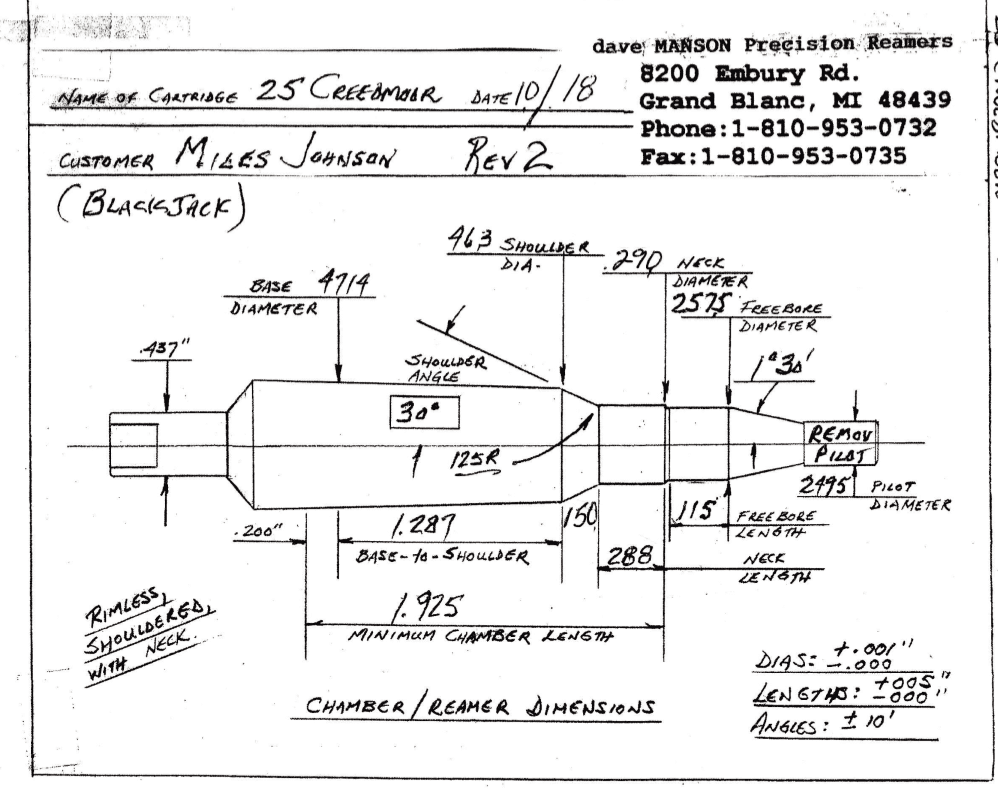 dave MANSON Precision Reamers
8200 Embury Rd.
Grand Blanc, MI 48439
Phone:1-810-953-0732
Fax:1-810-953-0735
NAME OF CARTRIDGE 25 CREEDMOOR DATE 10/18
CUSTOMER MILES JOHNSON REV 2
(BLACKJACK)
463 SHOULDER DIA.
.290 NECK DIAMETER
BASE DIAMETER 4714
2575 FREEBORE DIAMETER
.437"
SHOULDER ANGLE
30°
1°30'
125R
REMOV PILOT
2495 PILOT DIAMETER
.200"
1.287
BASE-to-SHOULDER
150
.115 FREEBORE LENGTH
288 NECK LENGTH
1.925
MINIMUM CHAMBER LENGTH
RIMLESS,
SHOULDERED,
WITH NECK.
CHAMBER/REAMER DIMENSIONS
DIAS: +.001" -.000
LENGTHS: +005" -000"
ANGLES: ± 10'